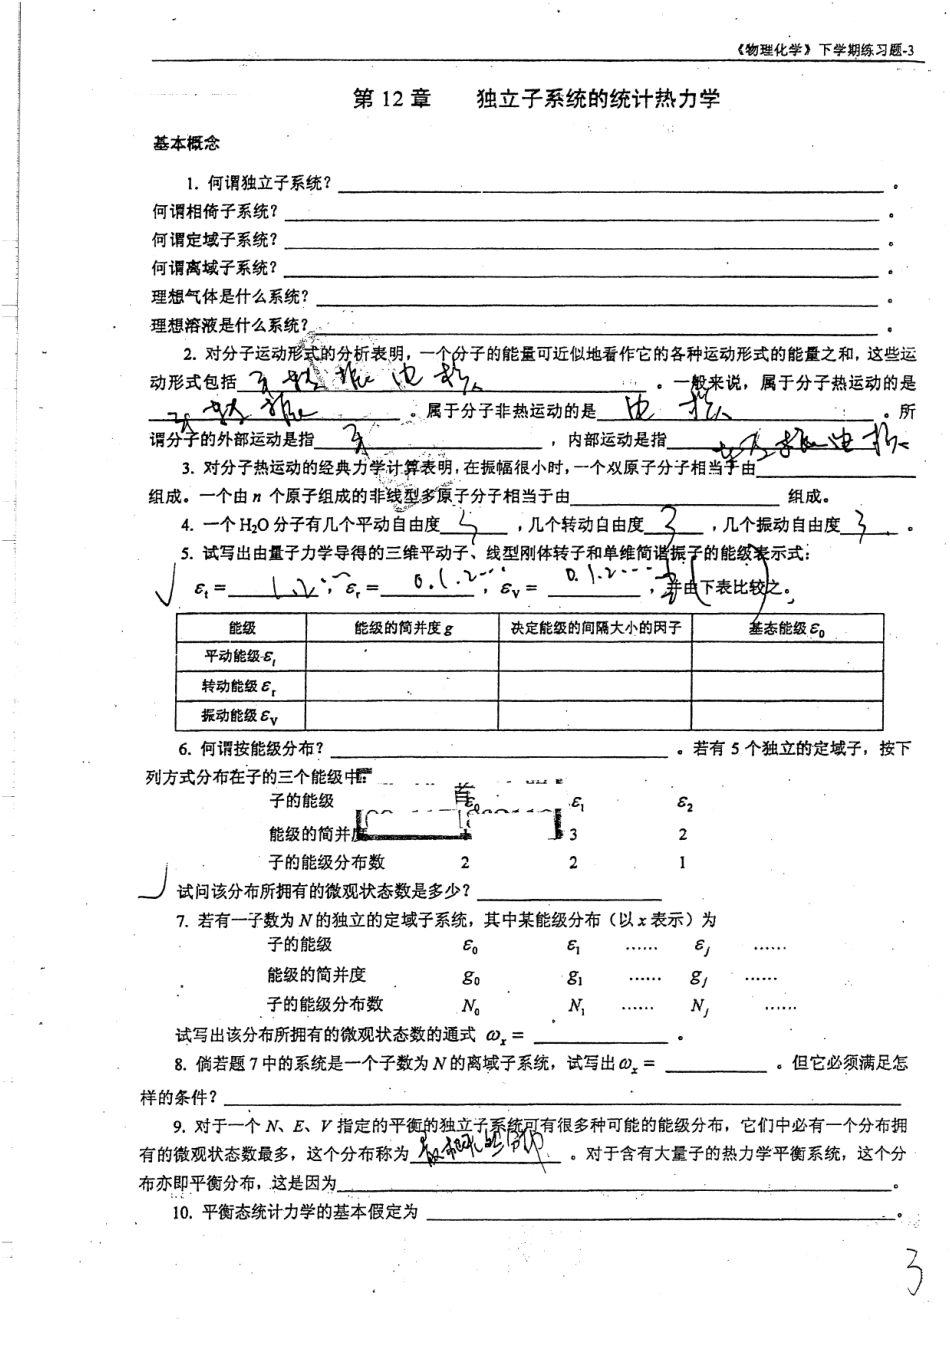 《物理化学》下学期练习题-3
第 12 章 独立子系统的统计热力学
基本概念
1. 何谓独立子系统？ 。
何谓相倚子系统？ 。
何谓定域子系统？ 。
何谓离域子系统？ 。
理想气体是什么系统？ 。
理想溶液是什么系统？ 。
2. 对分子运动形式的分析表明，一个分子的能量可近似地看作它的各种运动形式的能量之和，这些运
动形式包括 平 转 振 电 核 。一般来说，属于分子热运动的是
平 转 振 。属于分子非热运动的是 电 核 。所
谓分子的外部运动是指 平 ，内部运动是指 转 振 电 核
3. 对分子热运动的经典力学计算表明，在振幅很小时，一个双原子分子相当于由
组成。一个由 n 个原子组成的非线型多原子分子相当于由 组成。
4. 一个 H₂O 分子有几个平动自由度 ，几个转动自由度 3 ，几个振动自由度 3 。
5. 试写出由量子力学导得的三维平动子、线型刚体转子和单维简谐振子的能级表示式：
εt = 1,2… ，εr = 0.1.2… ，εv = 0.1.2… ，并由下表比较之。
能级 能级的简并度 g 决定能级的间隔大小的因子 基态能级 ε0
平动能级 εt
转动能级 εr
振动能级 εv
6. 何谓按能级分布？ 。若有 5 个独立的定域子，按下
列方式分布在子的三个能级中：
子的能级 ε1 ε2
能级的简并度 3 2
子的能级分布数 2 2 1
试问该分布所拥有的微观状态数是多少？
7. 若有一子数为 N 的独立的定域子系统，其中某能级分布（以 x 表示）为
子的能级 ε0 ε1 …… εj ……
能级的简并度 g0 g1 …… gj ……
子的能级分布数 N0 N1 …… Nj ……
试写出该分布所拥有的微观状态数的通式 ωx = 。
8. 倘若题 7 中的系统是一个子数为 N 的离域子系统，试写出 ωx = 。但它必须满足怎
样的条件？
9. 对于一个 N、E、V 指定的平衡的独立子系统可有很多种可能的能级分布，它们中必有一个分布拥
有的微观状态数最多，这个分布称为 最概然分布 。对于含有大量子的热力学平衡系统，这个分
布亦即平衡分布，这是因为 。
10. 平衡态统计力学的基本假定为 。
3